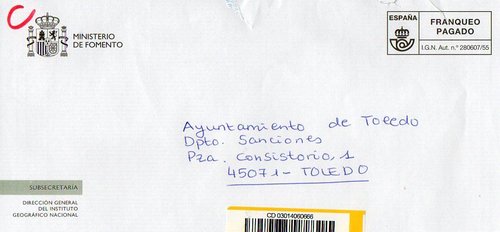 C
MINISTERIO
DE FOMENTO
ESPAÑA
FRANQUEO
PAGADO
I.G.N. Aut. n.º 280607/55
Ayuntamiento de Toledo
Dpto. Sanciones
Pza. Consistorio, 1
45071 - TOLEDO
SUBSECRETARIA
DIRECCIÓN GENERAL
DEL INSTITUTO
GEOGRÁFICO NACIONAL
CD 03014060666